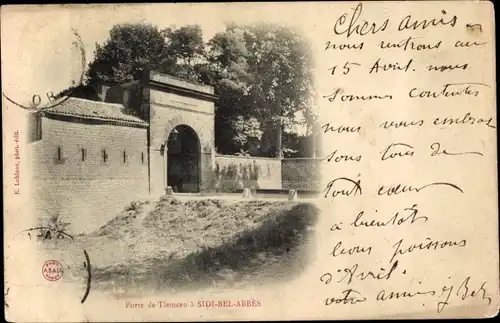 Chers amis
nous rentrons au
15 Avril. nous
sommes contents
nous vous embras
sons tous de
tout coeur
à bientôt
bons poissons
d'Avril.
votre amie
E. Leblanc, phot. édit.
OR
ASAD
Porte de Tlemcen à SIDI-BEL-ABBÈS